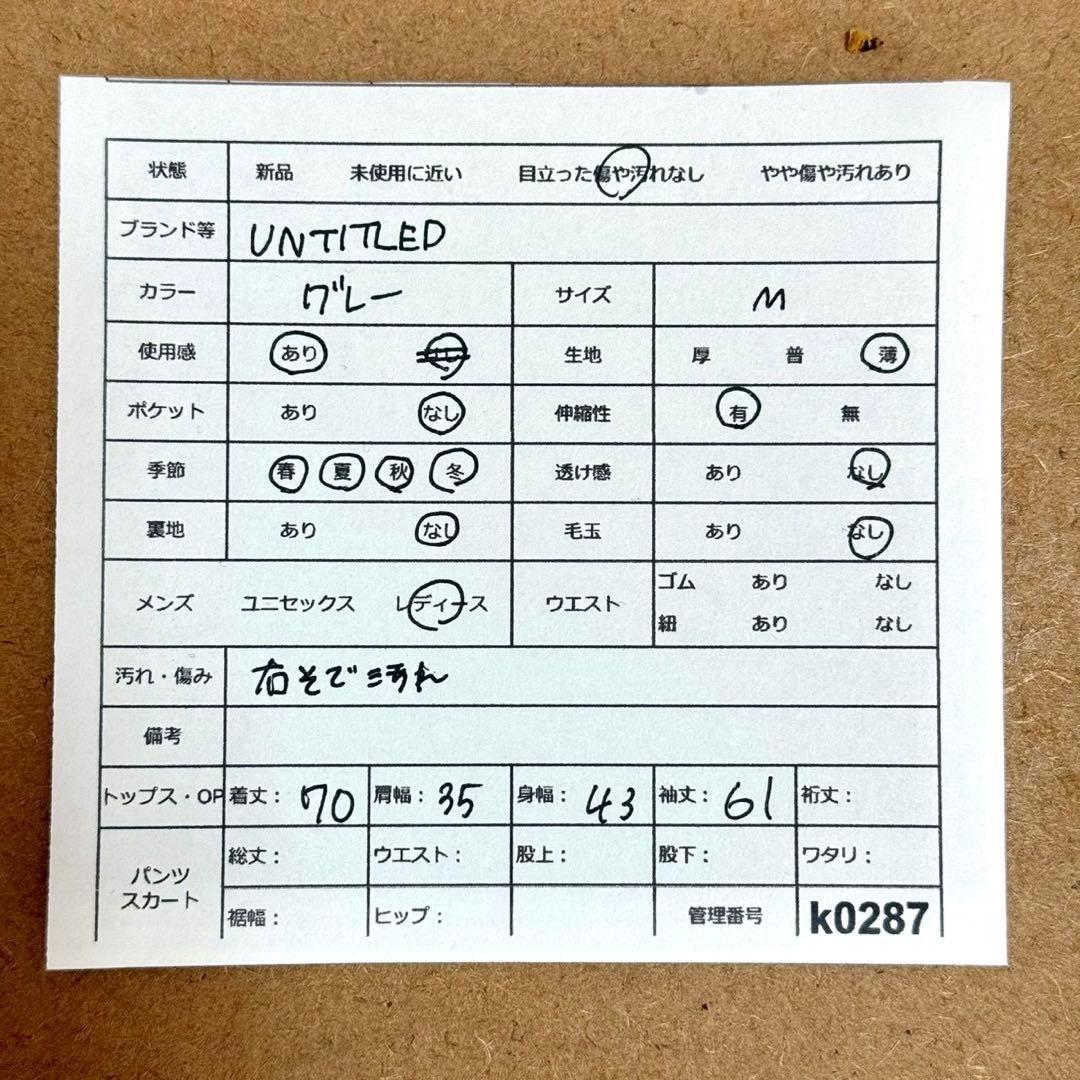 状態 新品 未使用に近い 目立った傷や汚れなし やや傷や汚れあり
ブランド等 UNTITLED
カラー グレー サイズ M
使用感 あり 生地 厚 普 薄
ポケット あり なし 伸縮性 有 無
季節 春 夏 秋 冬 透け感 あり なし
裏地 あり なし 毛玉 あり なし
メンズ ユニセックス レディース ウエスト ゴム あり なし
紐 あり なし
汚れ・傷み 右そで汚れ
備考
トップス・OP 着丈： 70 肩幅： 35 身幅： 43 袖丈： 61 裄丈：
パンツ スカート 総丈： ウエスト： 股上： 股下： ワタリ：
裾幅： ヒップ： 管理番号 k0287